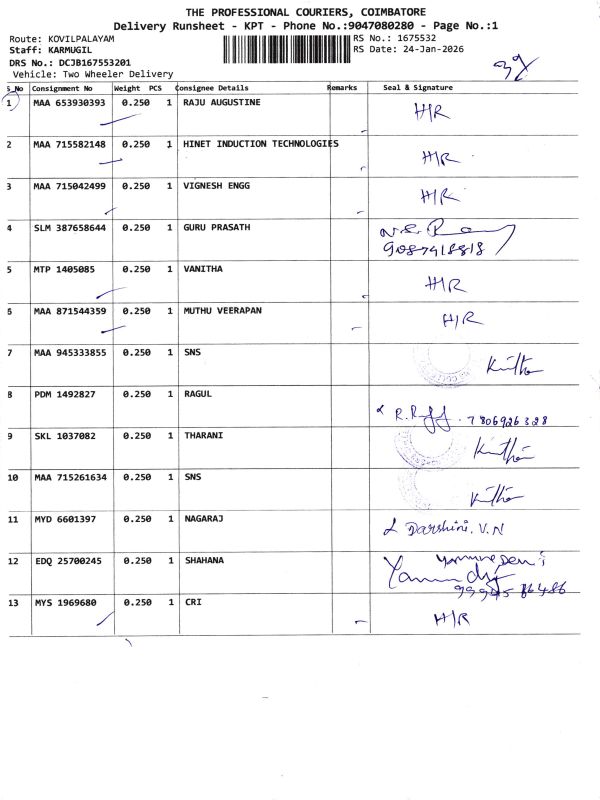 THE PROFESSIONAL COURIERS, COIMBATORE
Delivery Runsheet - KPT - Phone No.:9047080280 - Page No.:1
Route: KOVILPALAYAM
RS No.: 1675532
Staff: KARMUGIL
RS Date: 24-Jan-2026
DRS No.: DCJB167553201
Vehicle: Two Wheeler Delivery
S_No Consignment No Weight PCS Consignee Details Remarks Seal & Signature
1 MAA 653930393 0.250 1 RAJU AUGUSTINE H/R
2 MAA 715582148 0.250 1 HINET INDUCTION TECHNOLOGIES H/R
3 MAA 715042499 0.250 1 VIGNESH ENGG H/R
4 SLM 387658644 0.250 1 GURU PRASATH
9087418818
5 MTP 1405085 0.250 1 VANITHA H/R
6 MAA 871544359 0.250 1 MUTHU VEERAPAN H/R
7 MAA 945333855 0.250 1 SNS
8 PDM 1492827 0.250 1 RAGUL 7806926328
9 SKL 1037082 0.250 1 THARANI
10 MAA 715261634 0.250 1 SNS
11 MYD 6601397 0.250 1 NAGARAJ Darshini.V.N
12 EDQ 25700245 0.250 1 SHAHANA
13 MYS 1969680 0.250 1 CRI H/R